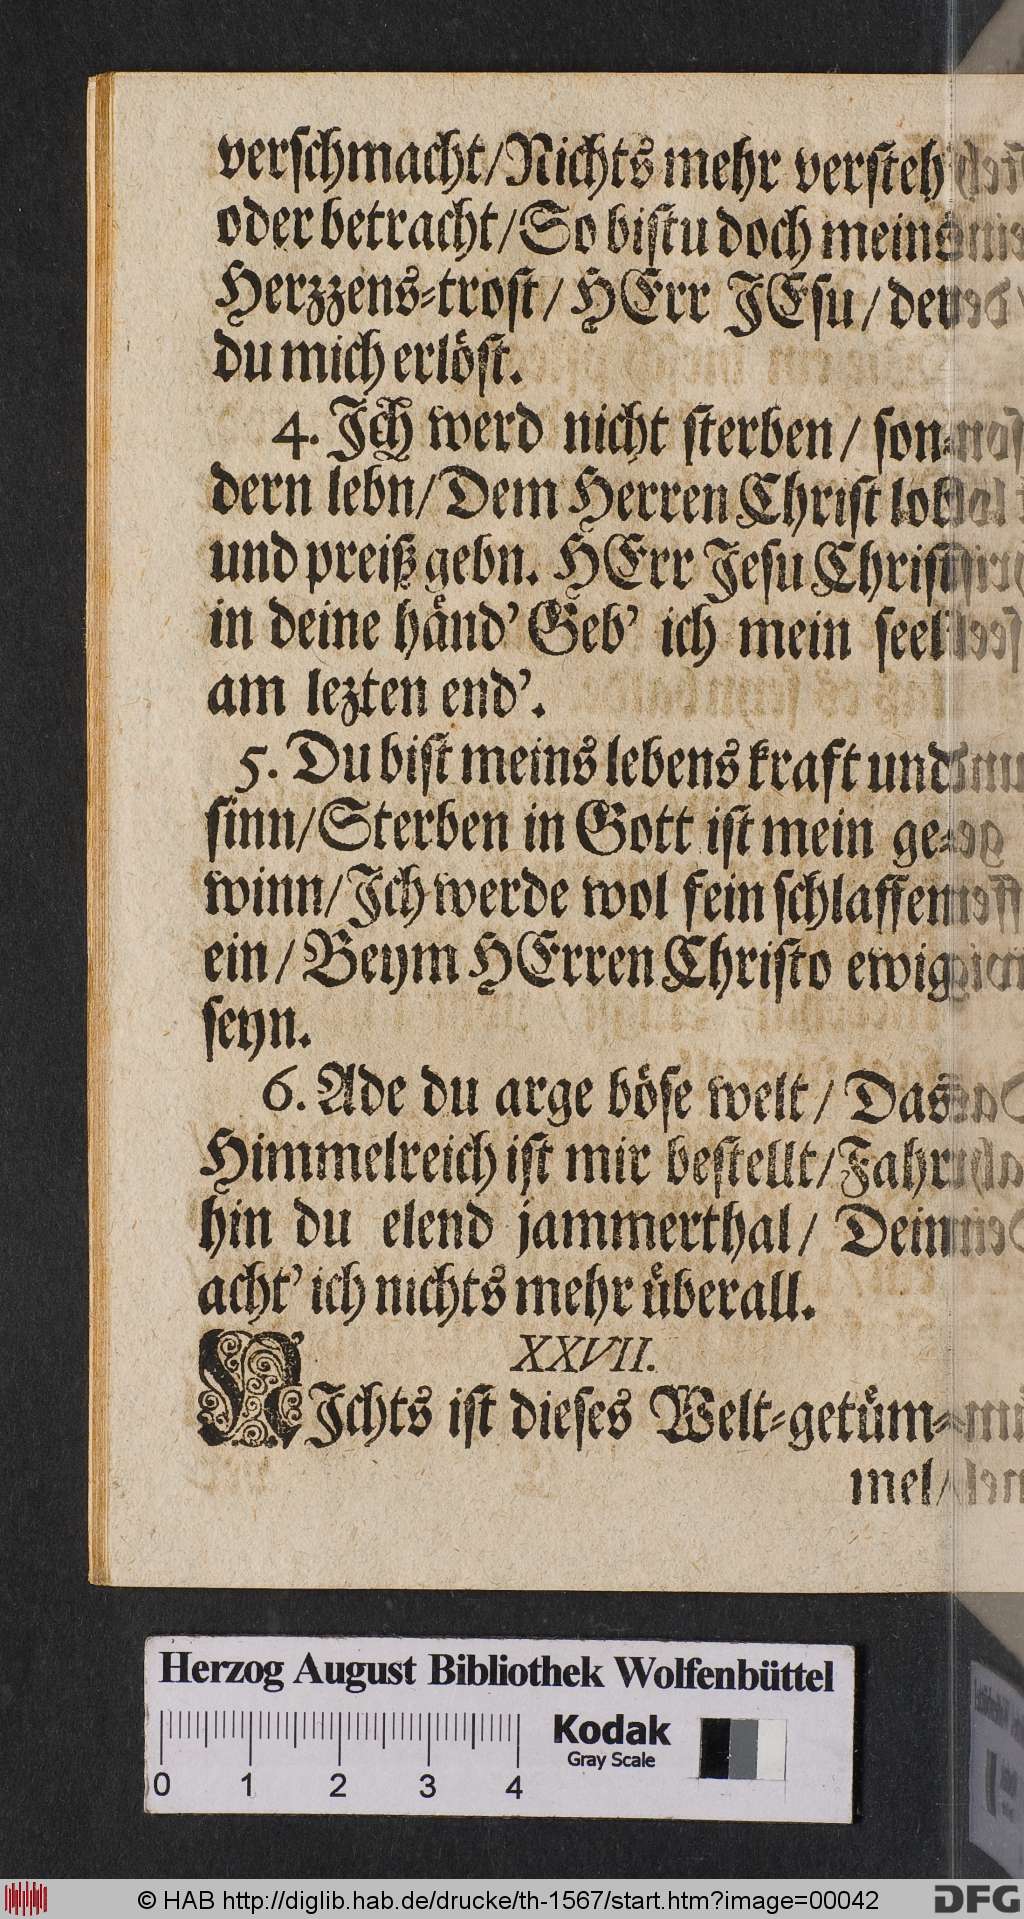 verschmacht/Nichts mehr versteh
oder betracht/So bistu doch meins
Herzzens-trost/ HErr JEsu/ der
du mich erlöst.
4. Ich werd nicht sterben/ son-
dern lebn/ Dem Herren Christ lob
und preiß gebn. HErr Jesu Christ
in deine händ' Geb' ich mein seel
am lezten end'.
5. Du bist meins lebens kraft und
sinn/Sterben in Gott ist mein ge-
winn/Ich werde wol fein schlaffen
ein/ Beym HErren Christo ewig
seyn.
6. Ade du arge böse welt/ Das
Himmelreich ist mir bestellt/Fahr
hin du elend jammerthal/ Dein
acht' ich nichts mehr überall.
XXVII.
NIchts ist dieses Welt-getüm-
mel/
Herzog August Bibliothek Wolfenbüttel
Kodak
Gray Scale
0 1 2 3 4
© HAB http://diglib.hab.de/drucke/th-1567/start.htm?image=00042
DFG